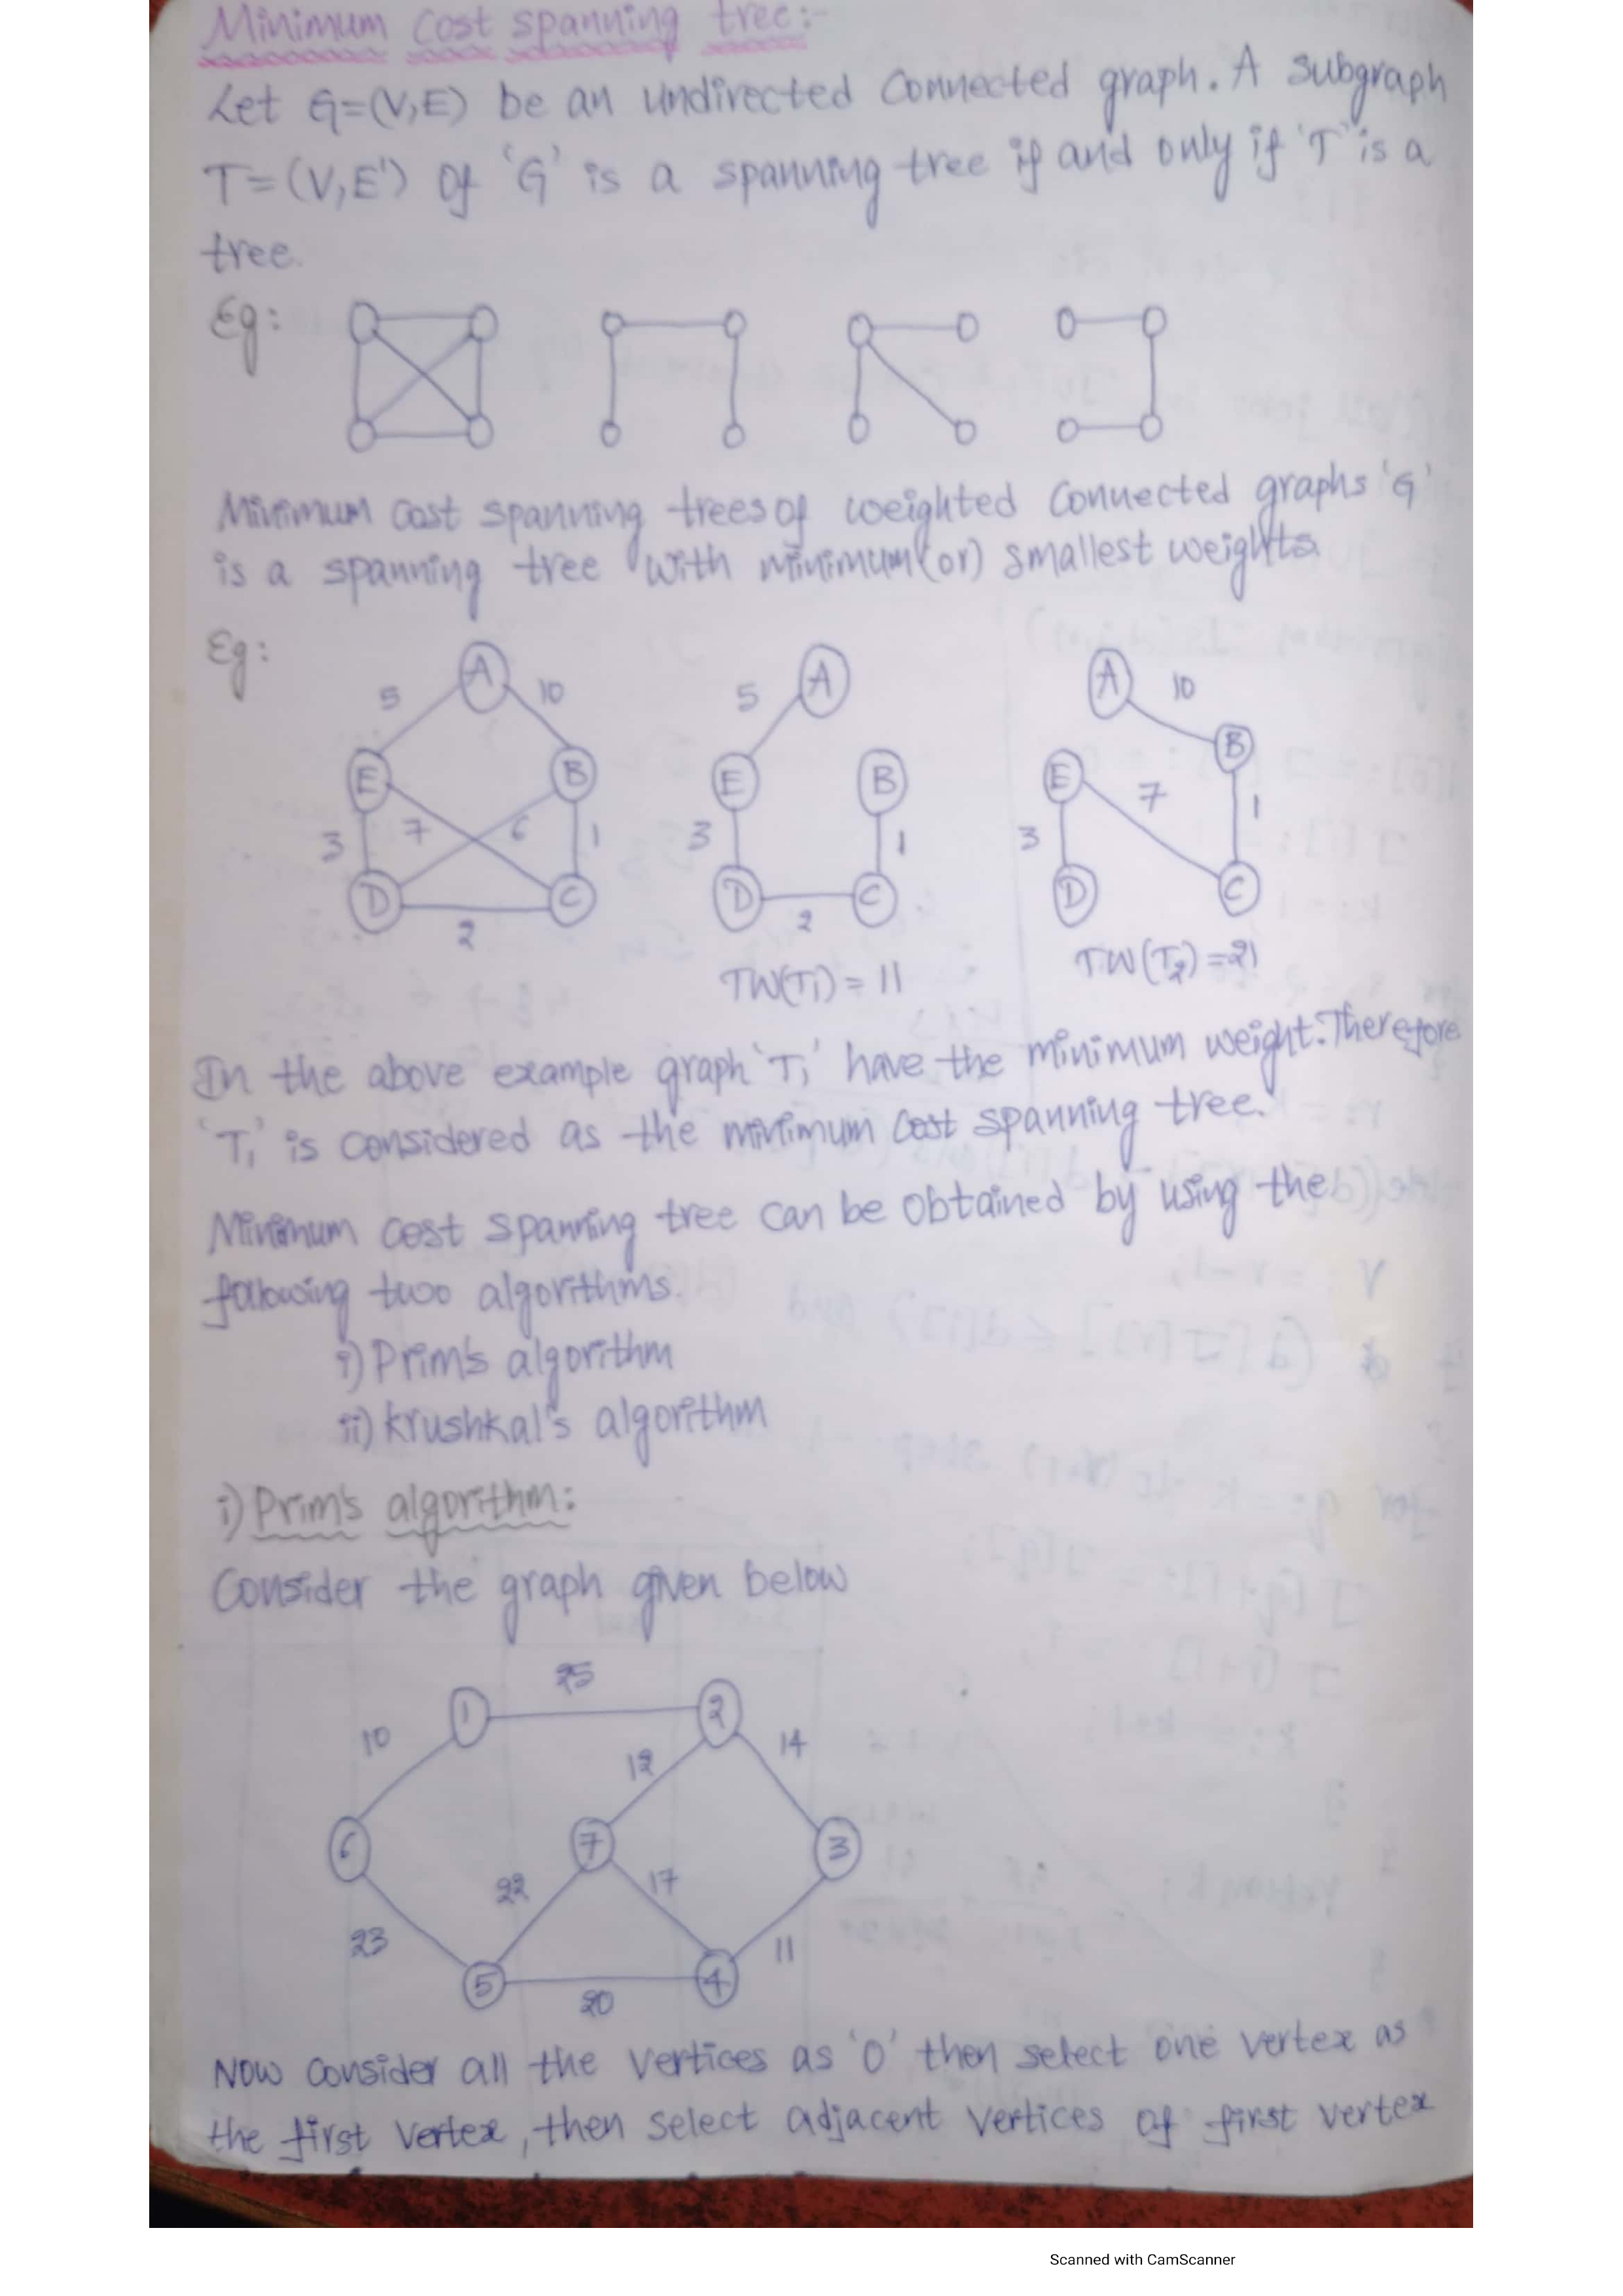 Minimum cost spanning tree:-
Let G=(V,E) be an undirected connected graph. A subgraph
T=(V,E') of 'G' is a spanning tree if and only if 'T' is a
tree.
Eg:
Minimum cost spanning trees of weighted connected graphs 'G'
is a spanning tree with minimum (or) smallest weights
Eg:
A A A
5 10 5 10
E B E B E B
3 7 6 1 3 1 3 7 1
D C D C D C
2 2
TW(T1) = 11 TW(T2) = 21
In the above example graph 'T1' have the minimum weight. Therefore
'T1' is considered as the minimum cost spanning tree.
Minimum cost spanning tree can be obtained by using the
following two algorithms.
i) Prim's algorithm
ii) Krushkal's algorithm
i) Prim's algorithm:
Consider the graph given below
25
1 2
10 12 14
6 7 3
22 17
23 11
5 4
20
Now consider all the vertices as '0' then select one vertex as
the first vertex, then select adjacent vertices of first vertex
Scanned with CamScanner